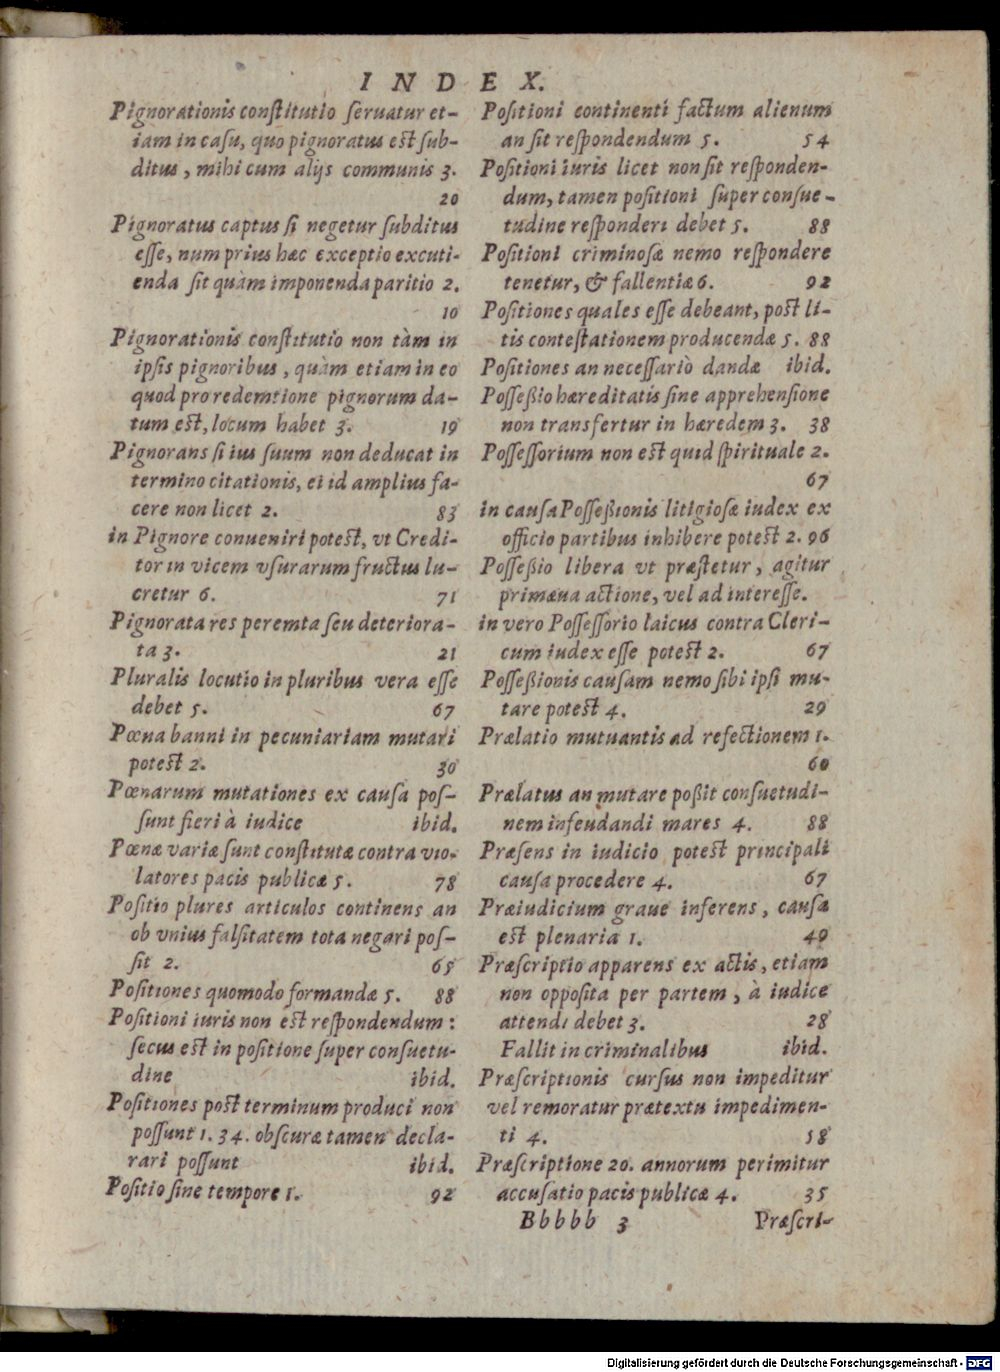 INDEX.
Pignorationis constitutio seruatur et-
iam in casu, quo pignoratus est sub-
ditus, mihi cum alijs communis 3.
20
Pignoratus captus si negetur subditus
esse, num prius hæc exceptio excuti-
enda sit quàm imponenda paritio 2.
10
Pignorationis constitutio non tàm in
ipsis pignoribus, quàm etiam in eo
quod pro redemtione pignorum da-
tum est, locum habet 3. 19
Pignorans si ius suum non deducat in
termino citationis, ei id amplius fa-
cere non licet 2. 83
in Pignore conueniri potest, vt Credi-
tor in vicem vsurarum fructus lu-
cretur 6. 71
Pignorata res peremta seu deteriora-
ta 3. 21
Pluralis locutio in pluribus vera esse
debet 5. 67
Pœna banni in pecuniariam mutari
potest 2. 30
Pœnarum mutationes ex causa pos-
sunt fieri à iudice ibid.
Pœnæ variæ sunt constitutæ contra vio-
latores pacis publicæ 5. 78
Positio plures articulos continens an
ob vnius falsitatem tota negari pos-
sit 2. 65
Positiones quomodo formandæ 5. 88
Positioni iuris non est respondendum:
secus est in positione super consuetu-
dine ibid.
Positiones post terminum produci non
possunt 1. 34. obscuræ tamen decla-
rari possunt ibid.
Positio sine tempore 1. 92
Positioni continenti factum alienum
an sit respondendum 5. 54
Positioni iuris licet non sit responden-
dum, tamen positioni super consue-
tudine responderi debet 5. 88
Positioni criminosæ nemo respondere
tenetur, & fallentiæ 6. 92
Positiones quales esse debeant, post li-
tis contestationem producendæ 5. 88
Positiones an necessariò dandæ ibid.
Posseßio hæreditatis sine apprehensione
non transfertur in hæredem 3. 38
Possessorium non est quid spirituale 2.
67
in causa Posseßionis litigiosæ iudex ex
officio partibus inhibere potest 2. 96
Posseßio libera vt præstetur, agitur
primæua actione, vel ad interesse.
in vero Possessorio laicus contra Cleri-
cum iudex esse potest 2. 67
Posseßionis causam nemo sibi ipsi mu-
tare potest 4. 29
Prælatio mutuantis ad refectionem 1.
60
Prælatus an mutare poßit consuetudi-
nem infeudandi mares 4. 88
Præsens in iudicio potest principali
causa procedere 4. 67
Præiudicium graue inferens, causa
est plenaria 1. 49
Præscriptio apparens ex actis, etiam
non opposita per partem, à iudice
attendi debet 3. 28
Fallit in criminalibus ibid.
Præscriptionis cursus non impeditur
vel remoratur prætextu impedimen-
ti 4. 58
Præscriptione 20. annorum perimitur
accusatio pacis publicæ 4. 35
Bbbbb 3 Præscri-
Digitalisierung gefördert durch die Deutsche Forschungsgemeinschaft - DFG